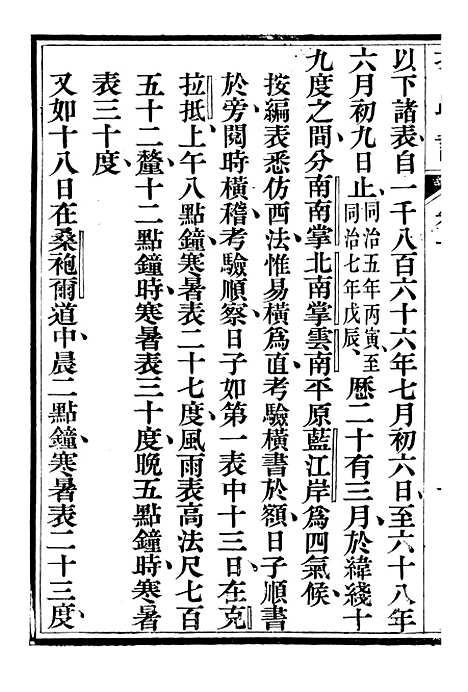 以下諸表自一千八百六十六年七月初六日至六十八年
六月初九日止同治五年丙寅至同治七年戊辰歷二十有三月於緯綫十
九度之間分南南掌北南掌雲南平原藍江岸爲四氣候
按編表悉仿西法惟易橫爲直考驗橫書於額日子順書
於旁閱時橫稽考驗順察日子如第一表中十三日在克
拉抵上午八點鐘寒暑表二十七度風雨表高法尺七百
五十二釐十二點鐘時寒暑表三十度晚五點鐘時寒暑
表三十度
又如十八日在桑袍爾道中晨二點鐘寒暑表二十三度